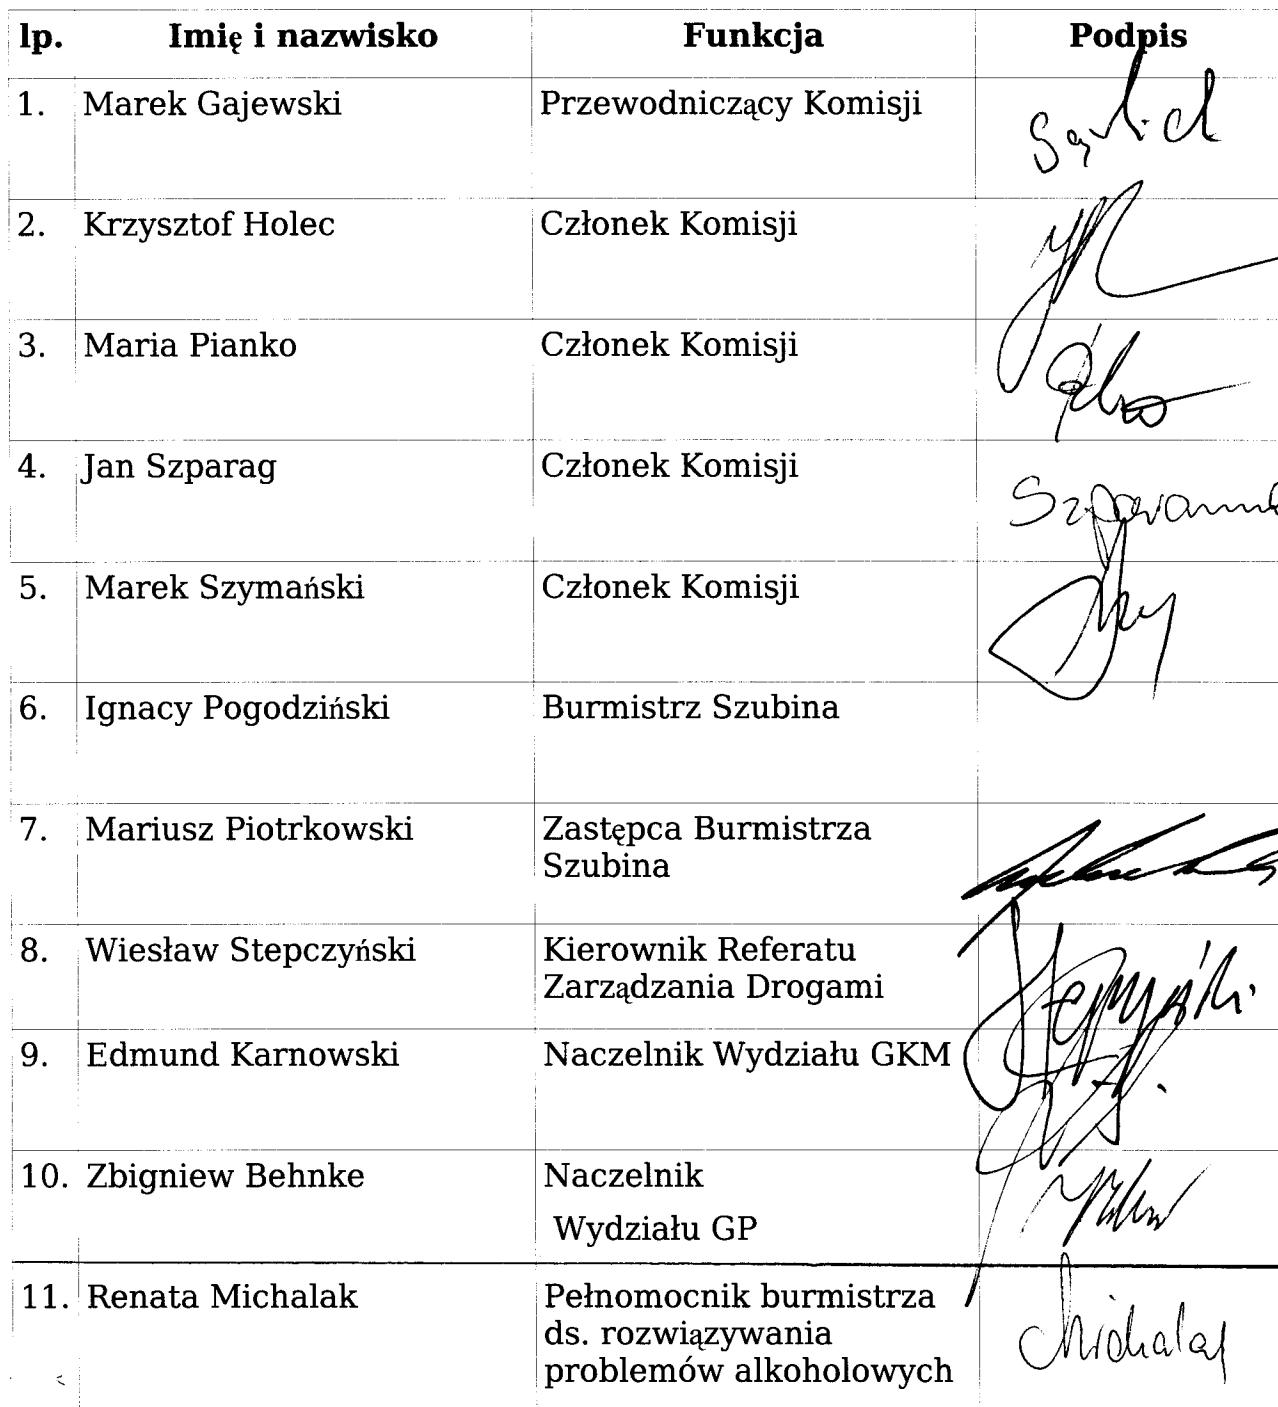 lp. Imię i nazwisko Funkcja Podpis
1. Marek Gajewski Przewodniczący Komisji
2. Krzysztof Holec Członek Komisji
3. Maria Pianko Członek Komisji
4. Jan Szparag Członek Komisji
5. Marek Szymański Członek Komisji
6. Ignacy Pogodziński Burmistrz Szubina
7. Mariusz Piotrkowski Zastępca Burmistrza
Szubina
8. Wiesław Stepczyński Kierownik Referatu
Zarządzania Drogami
9. Edmund Karnowski Naczelnik Wydziału GKM
10. Zbigniew Behnke Naczelnik
Wydziału GP
11. Renata Michalak Pełnomocnik burmistrza
ds. rozwiązywania
problemów alkoholowych